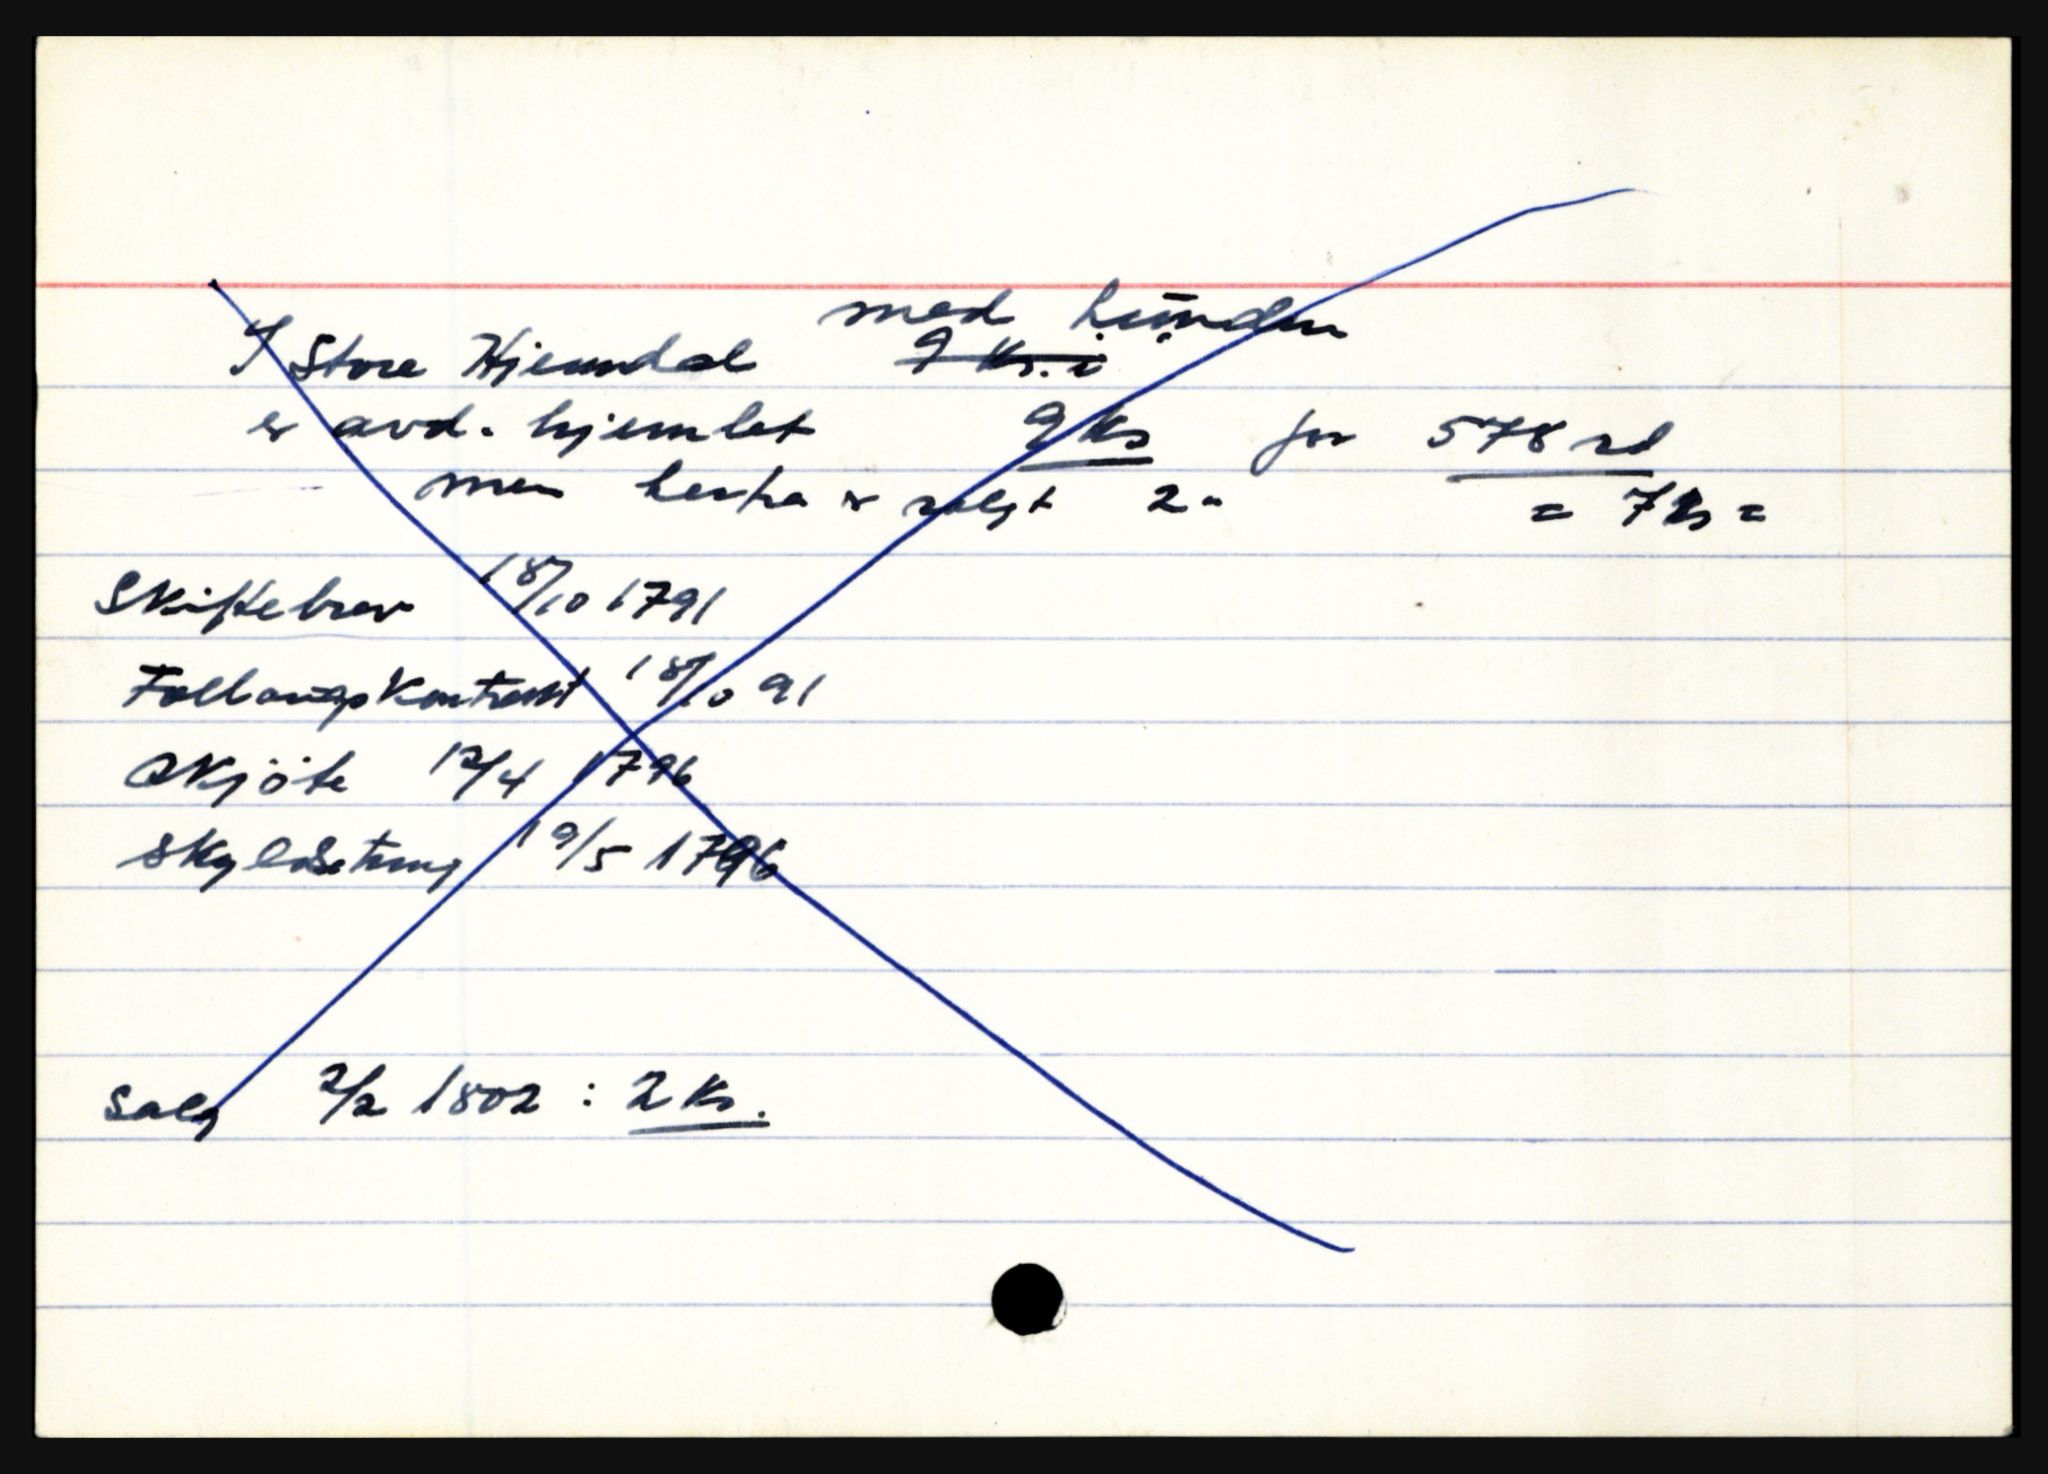 I Store Hjemdal med
9 ks. i
er avd. hjemlet 9 ks for 578 rd
men herfra er solgt 2 " = 7 ks =
Skiftebrev 18/10 1791
Follaugskontrakt 18/10 91
Skjöte 12/4 1796
Skyldsetning 19/5 1796
Salg 2/2 1802 : 2 ks.